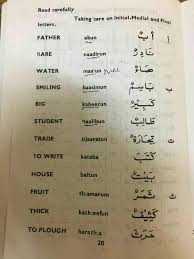 Read carefully
Taking care on Initial, Medial and Final
letters.
FATHER abun أَبٌ أ
RARE naadirun نَادِرٌ
WATER maa'un مَاءٌ
SMILING baasimun بَاسِمٌ ب
BIG kabeerun كَبِيرٌ
STUDENT taalibun طَالِبٌ
TRADE tijaaratun تِجَارَةٌ ت
TO WRITE kataba كَتَبَ
HOUSE baitun بَيْتٌ
FRUIT th:amarun ثَمَرٌ ث
THICK kath:eefun كَثِيفٌ
TO PLOUGH harath:a حَرَثَ
20